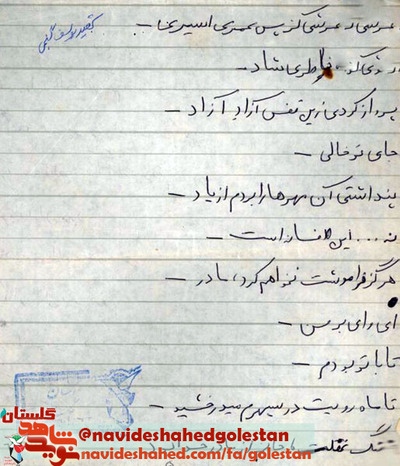 شهید یوسف گلی
عرسی و عرشی گزیس عمری اسیریها -
خاطری شاد -
پرواز کردی زین قفس آزادِ آزاد -
جای تو خالی -
پنداشتی آن مهرها را بردم از یاد -
نه ... این افسانه است -
هرگز فراموشت نخواهم کرد، مادر -
ای وای بر من -
تا با تو بودم -
تا ماه رویت در سپهرم میدرخشید -
گلستان
نوید شاهد
@navideshahedgolestan
navideshahed.com/fa/golestan